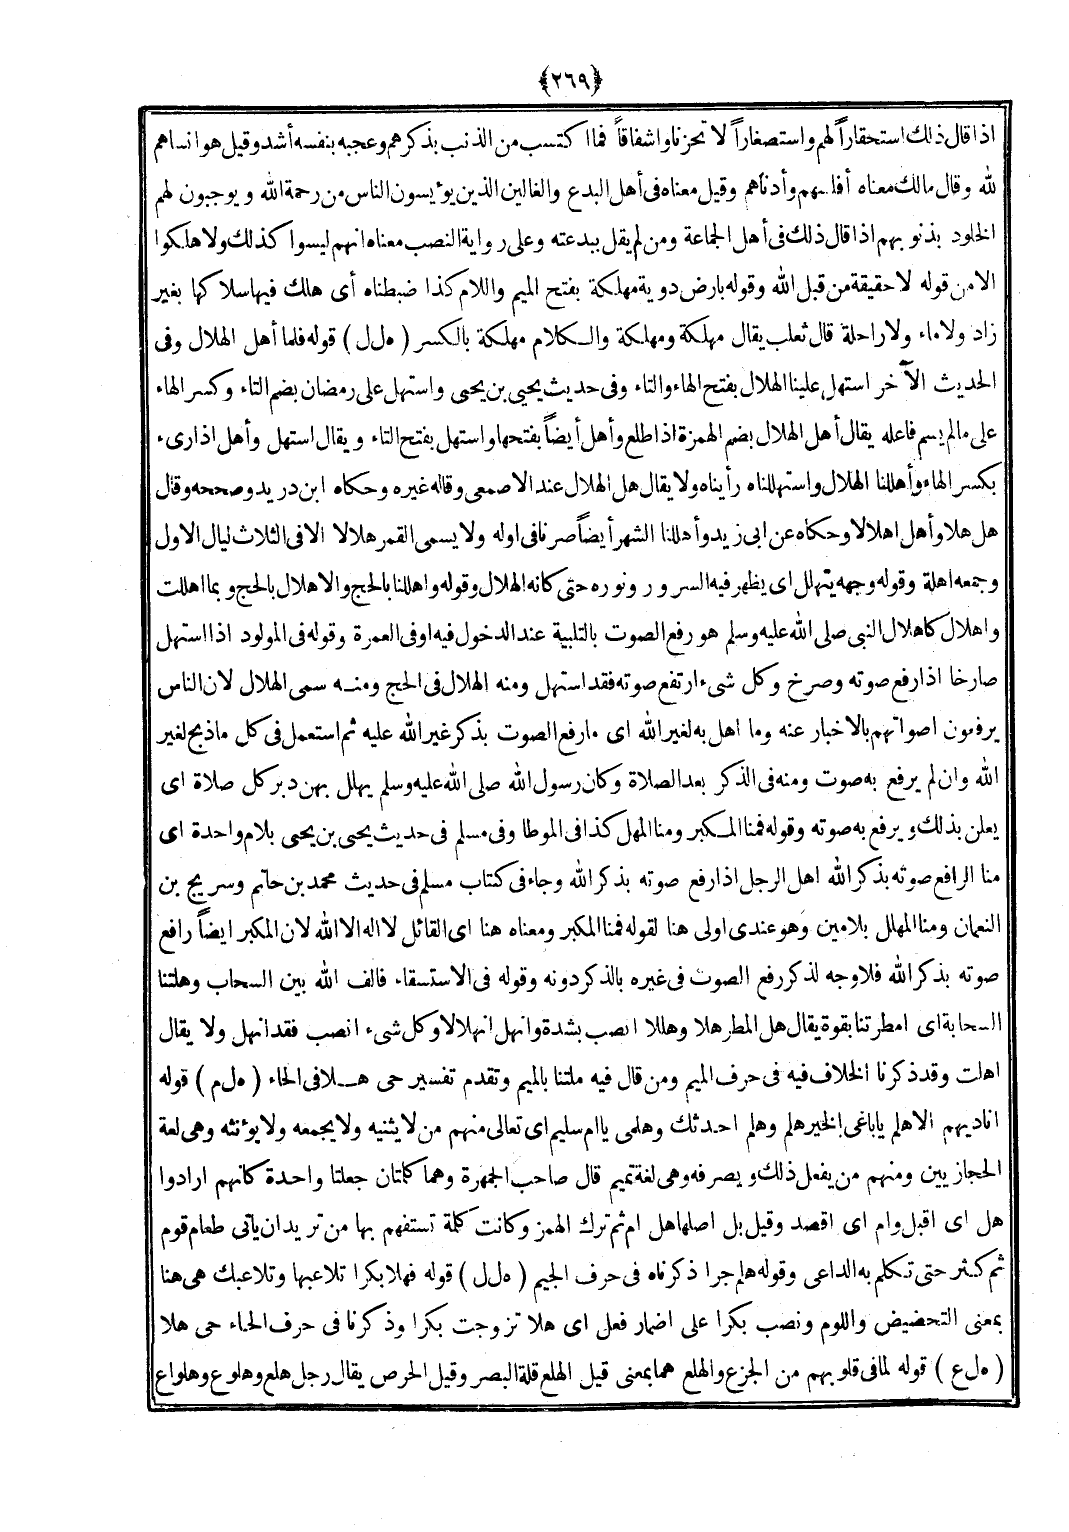 ﴿٢٦٩﴾
اذا قال ذلك استحقاراً لهم واستصغاراً لا تحزنا واشفاقاً فما اكتسب من الذنب بذكرهم وعجبه بنفسه أشد وقيل هو انساهم
لله وقال مالك معناه أفلسهم وأدناهم وقيل معناه فى أهل البدع والغالين الذين يؤيسون الناس من رحمة الله ويوجبون لهم
الخلود بذنوبهم اذا قال ذلك فى أهل الجماعة ومن لم يقل ببدعته وعلى رواية النصب معناه انهم ليسوا كذلك ولا هلكوا
الا من قوله لا حقيقة من قبل الله وقوله بارض دوية مهلكة بفتح الميم واللام كذا ضبطناه أى هلك فيها سلاكها بغير
زاد ولا ماء ولا راحلة قال ثعلب يقال مهلكة ومهلكة والكلام مهلكة بالكسر ( ه ل ل ) قوله فلما أهل الهلال وفى
الحديث الآخر استهل علينا الهلال بفتح الهاء والتاء وفى حديث يحيى بن يحيى واستهل على رمضان بضم التاء وكسر الهاء
على مالم يسم فاعله يقال أهل الهلال بضم الهمزة اذا طلع وأهل أيضاً بفتحها واستهل بفتح التاء ويقال استهل وأهل اذا رىء
بكسر الهاء وأهللنا الهلال واستهللناه رأيناه ولا يقال هل الهلال عند الاصمعى وقاله غيره وحكاه ابن دريد وصححه وقال
هل هلا وأهل اهلالا وحكاه عن ابى زيد وأهللنا الشهر أيضاً صرنا فى اوله ولا يسمى القمر هلالا الا فى الثلاث ليال الاول
وجمعه اهلة وقوله وجهه يتهلل اى يظهر فيه السرور ونوره حتى كانه الهلال وقوله واهللنا بالحج والاهلال بالحج وبما اهللت
واهلال كاهلال النبى صلى الله عليه وسلم هو رفع الصوت بالتلبية عند الدخول فيه اوفى العمرة وقوله فى المولود اذا استهل
صارخا اذا رفع صوته وصرخ وكل شىء ارتفع صوته فقد استهل ومنه الهلال فى الحج ومنه سمى الهلال لان الناس
يرفعون اصواتهم بالاخبار عنه وما اهل به لغير الله اى مارفع الصوت بذكر غير الله عليه ثم استعمل فى كل ماذبح لغير
الله وان لم يرفع به صوت ومنه فى الذكر بعد الصلاة وكان رسول الله صلى الله عليه وسلم يهلل بهن دبر كل صلاة اى
يعلن بذلك ويرفع به صوته وقوله فمنا المكبر ومنا المهل كذا فى الموطا وفى مسلم فى حديث يحيى بن يحيى بلام واحدة اى
منا الرافع صوته بذكر الله اهل الرجل اذا رفع صوته بذكر الله وجاء فى كتاب مسلم فى حديث محمد بن حاتم وسريج بن
النعمان ومنا المهلل بلامين وهو عندى اولى هنا لقوله فمنا المكبر ومعناه هنا اى القائل لا اله الا الله لان المكبر ايضاً رافع
صوته بذكر الله فلا وجه لذكر رفع الصوت فى غيره بالذكر دونه وقوله فى الاستسقاء فالف الله بين السحاب وهلتنا
السحابة اى امطرتنا بقوة يقال هل المطر هلا وهللا انصب بشدة وانهل انهلالا وكل شىء انصب فقد انهل ولا يقال
اهلت وقد ذكرنا الخلاف فيه فى حرف الميم ومن قال فيه ملتنا بالميم وتقدم تفسير حى هلا فى الحاء ( ه ل م ) قوله
اناديهم الا هلم ياباغى الخير هلم وهلم احدثك وهلمى ياام سليم اى تعالى منهم من لا يثنيه ولا يجمعه ولا يؤنثه وهى لغة
الحجازيين ومنهم من يفعل ذلك ويصرفه وهى لغة تميم قال صاحب الجمهرة وهما كلمتان جعلتا واحدة كانهم ارادوا
هل اى اقبل وام اى اقصد وقيل بل اصلها هل ام ثم ترك الهمز وكانت كلمة تستفهم بها من تريدان ياتى طعام قوم
ثم كثر حتى تكلم به الداعى وقوله هلم جرا ذكرناه فى حرف الجيم ( ه ل ل ) قوله فهلا بكرا تلاعبها وتلاعبك هى هنا
بمعنى التحضيض واللوم ونصب بكرا على اضمار فعل اى هلا تزوجت بكرا وذكرنا فى حرف الحاء حى هلا
( ه ل ع ) قوله لما فى قلوبهم من الجزع والهلع هما بمعنى قيل الهلع قلة البصر وقيل الحرص يقال رجل هلع وهلوع وهلواع